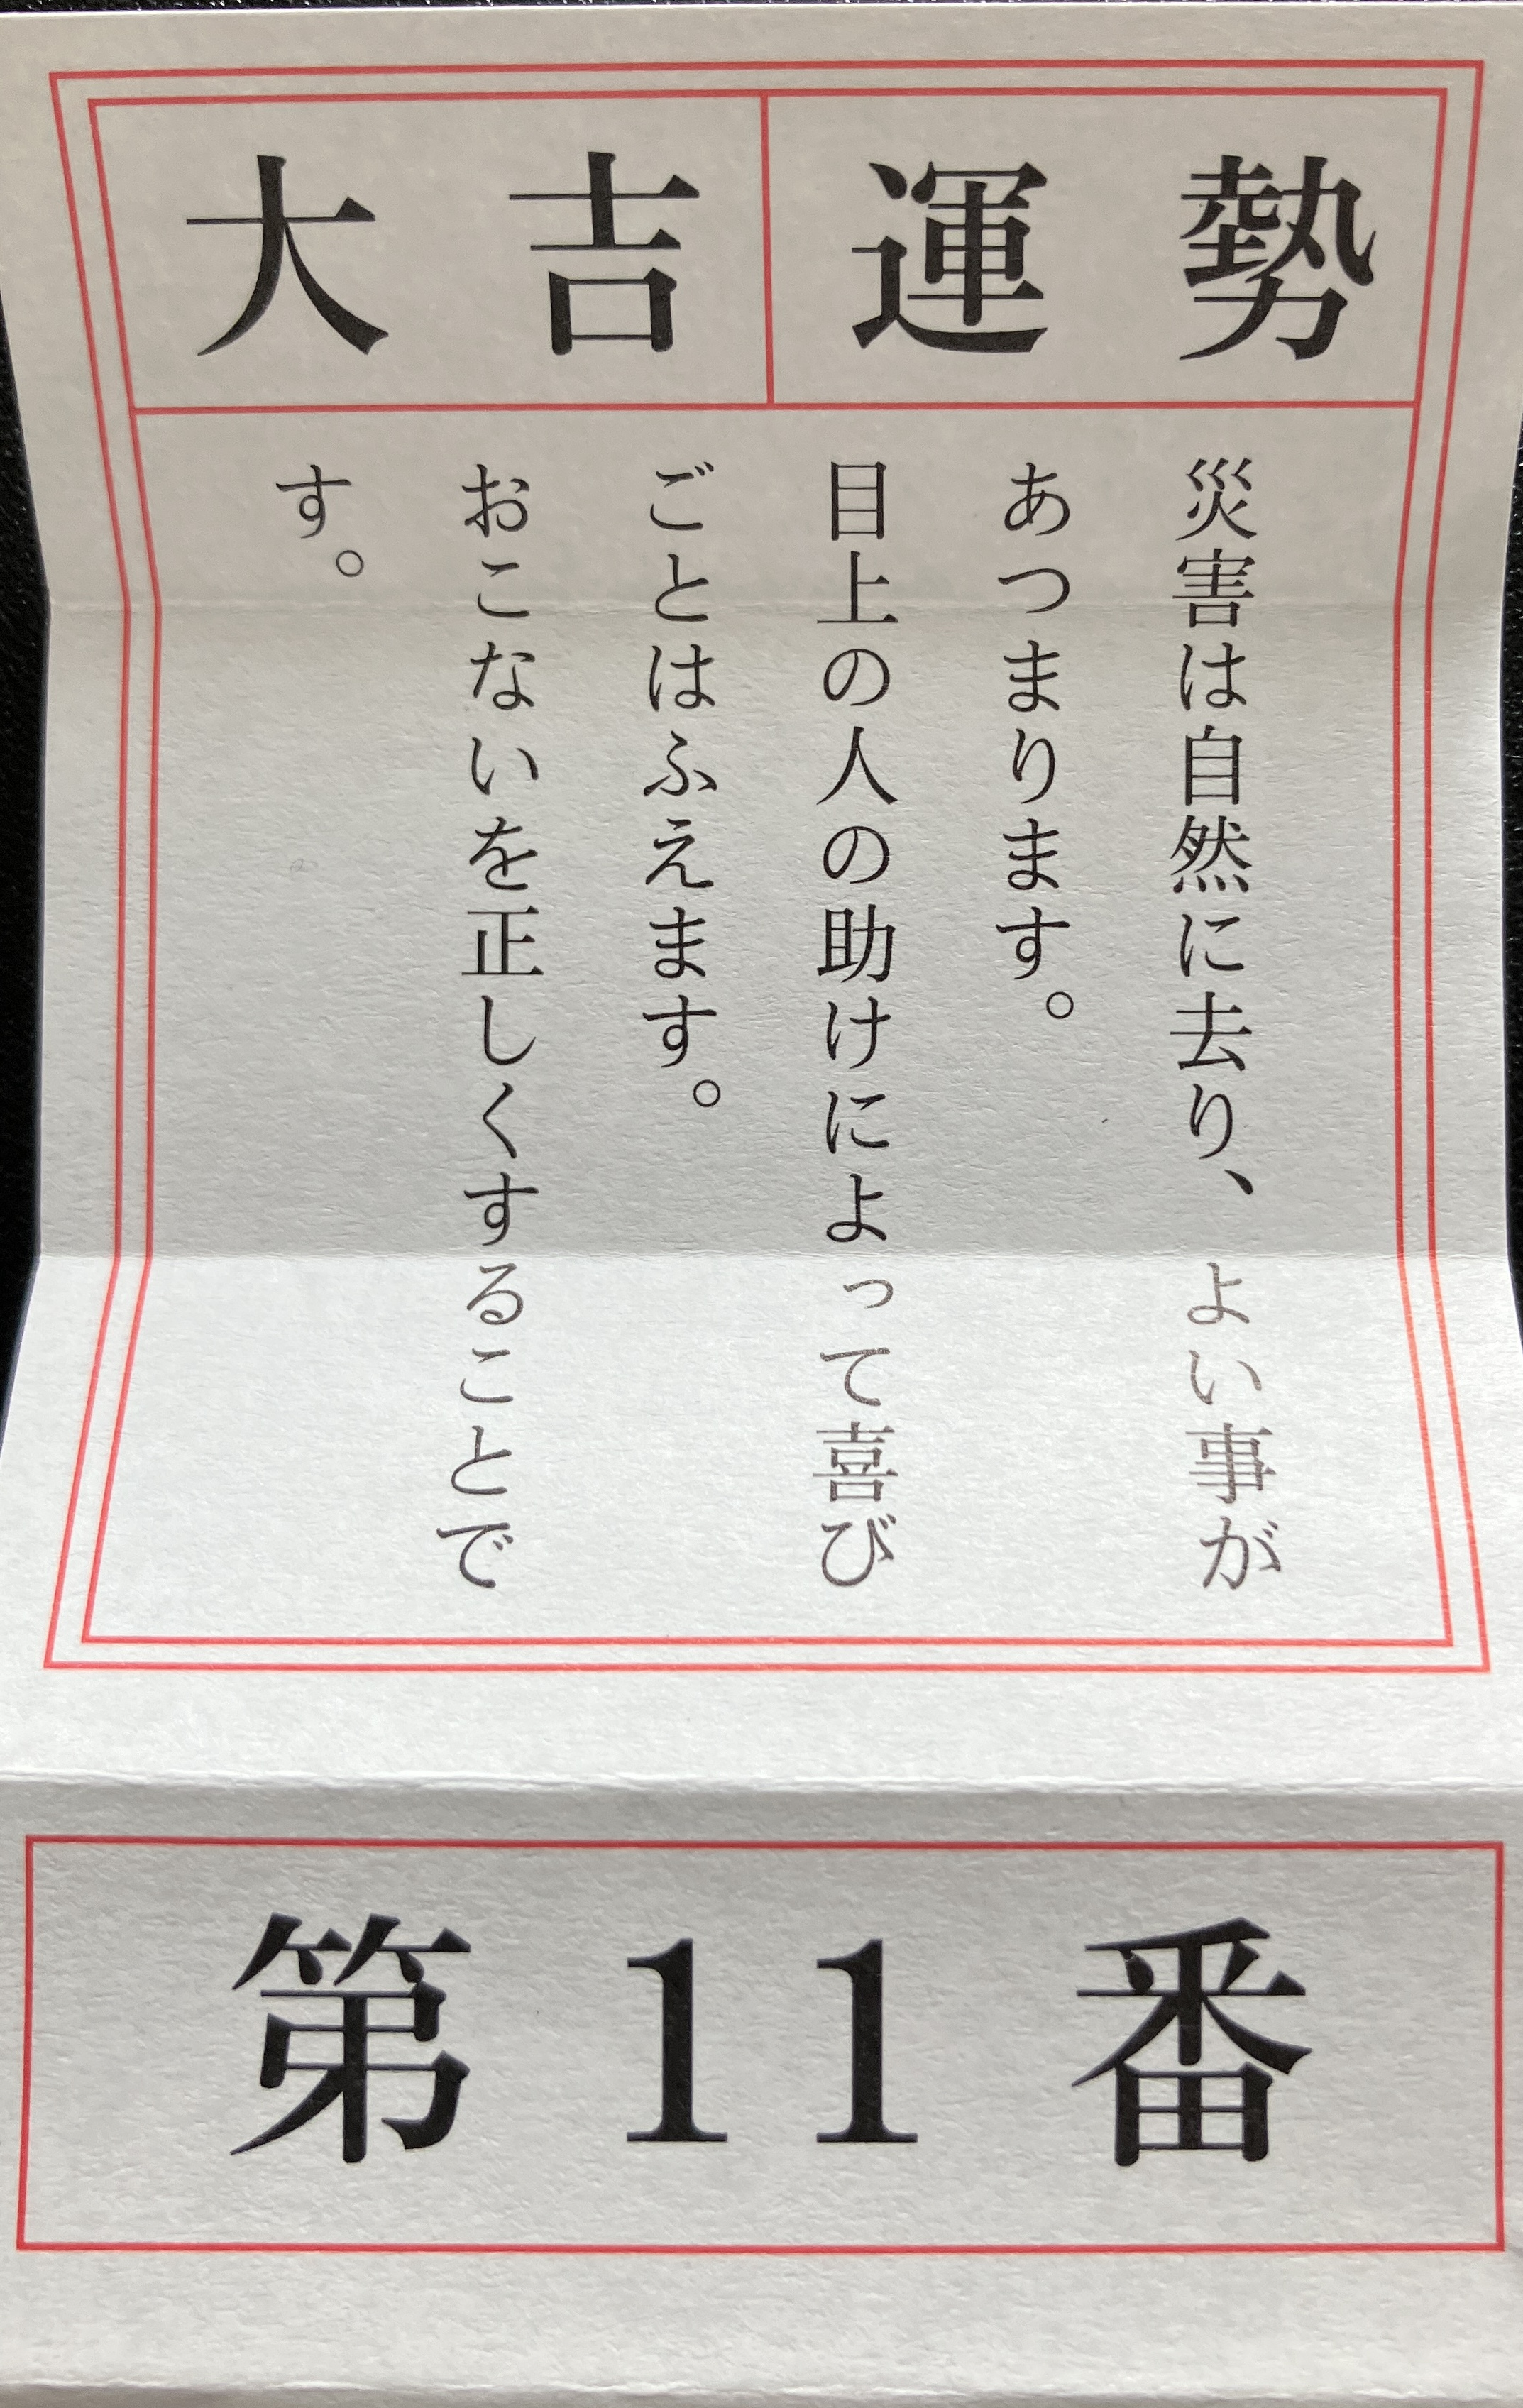 大吉
運勢
災害は自然に去り、よい事が
あつまります。
目上の人の助けによって喜び
ごとはふえます。
おこないを正しくすることで
す。
第11番